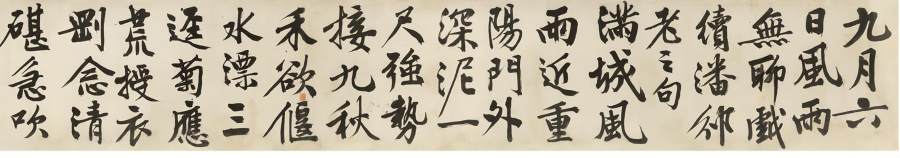 九月六
日風雨
無聊戲
續潘邠
老之句
滿城風
雨近重
陽門外
深泥一
尺強勢
接九秋
禾欲偃
水漂三
逕菊應
荒授衣
剛念清
碪急吹